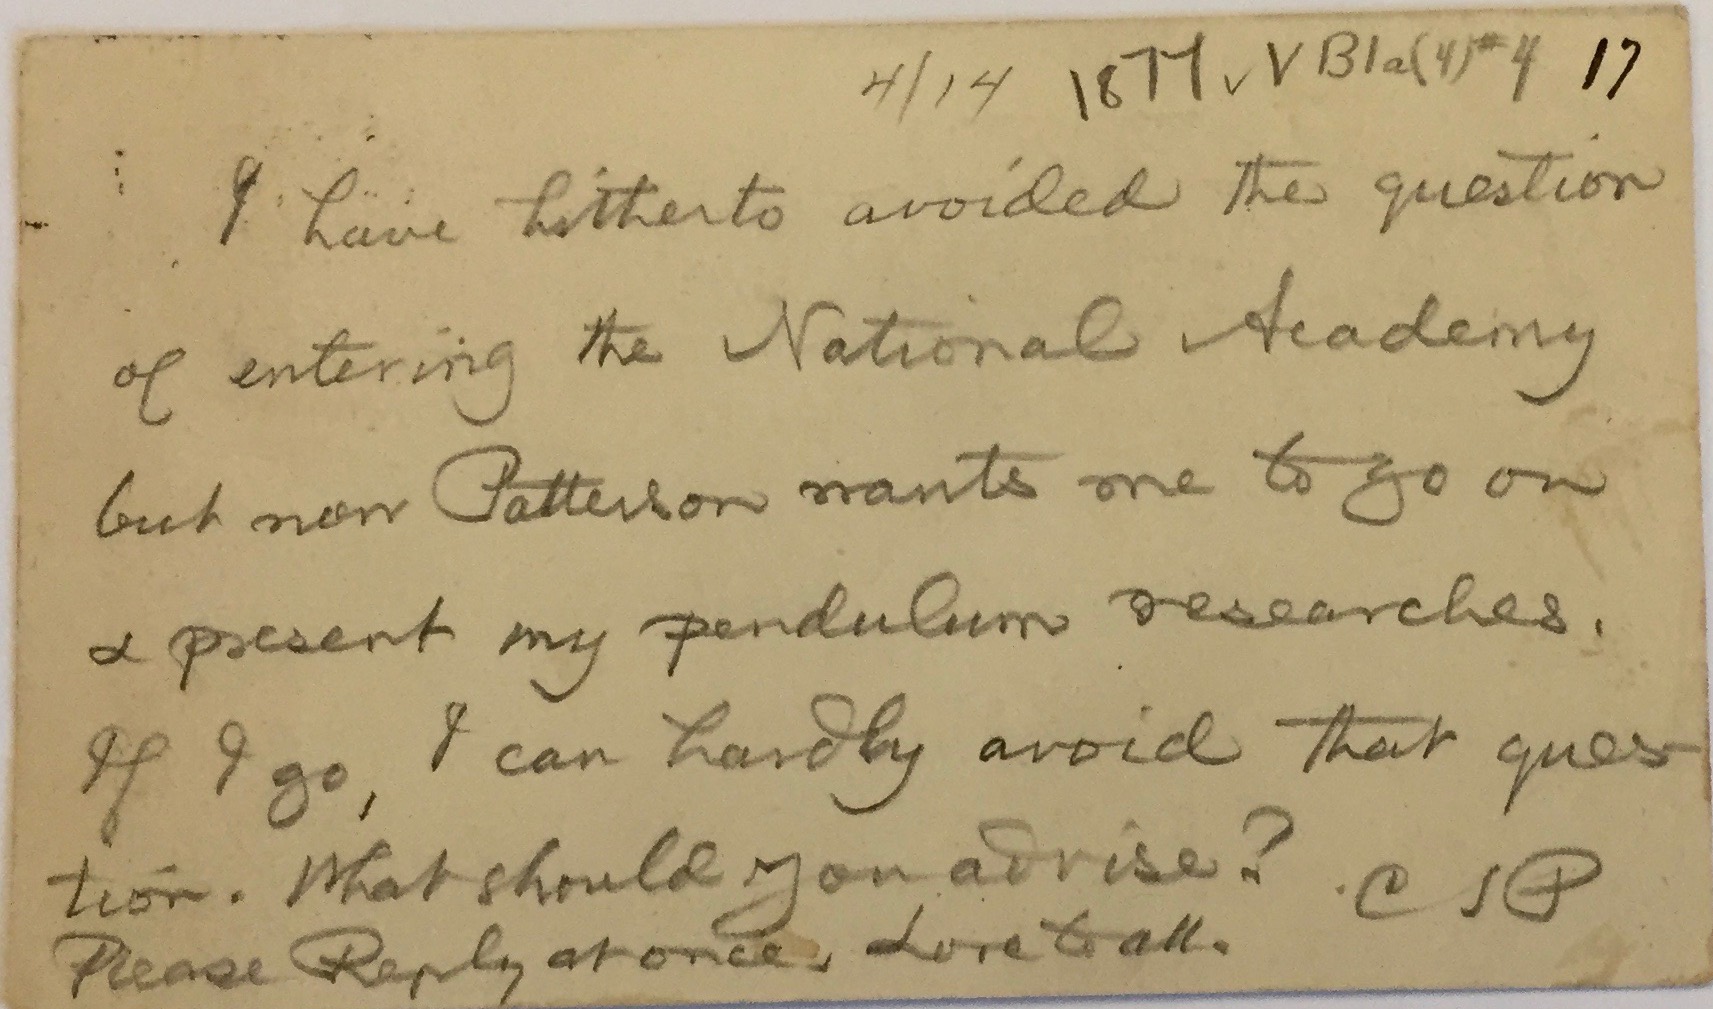 4/14 1877 v V B1a(4)#4 17
I have hitherto avoided the question
of entering the National Academy
but now Patterson wants me to go on
& present my pendulum researches.
If I go, I can hardly avoid that ques-
tion. What should you advise? C S P
Please Reply at once. Love to all.